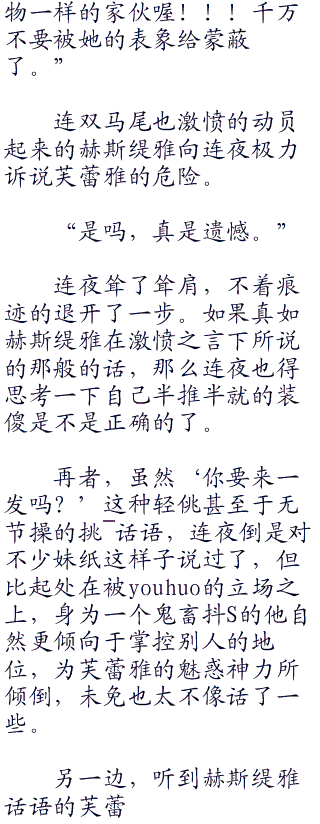 物一样的家伙喔！！！千万
不要被她的表象给蒙蔽
了。”
连双马尾也激愤的动员
起来的赫斯缇雅向连夜极力
诉说芙蕾雅的危险。
“是吗，真是遗憾。”
连夜耸了耸肩，不着痕
迹的退开了一步。如果真如
赫斯缇雅在激愤之言下所说
的那般的话，那么连夜也得
思考一下自己半推半就的装
傻是不是正确的了。
再者，虽然‘你要来一
发吗？’这种轻佻甚至于无
节操的挑¯话语，连夜倒是对
不少妹纸这样子说过了，但
比起处在被youhuo的立场之
上，身为一个鬼畜抖S的他自
然更倾向于掌控别人的地
位，为芙蕾雅的魅惑神力所
倾倒，未免也太不像话了一
些。
另一边，听到赫斯缇雅
话语的芙蕾